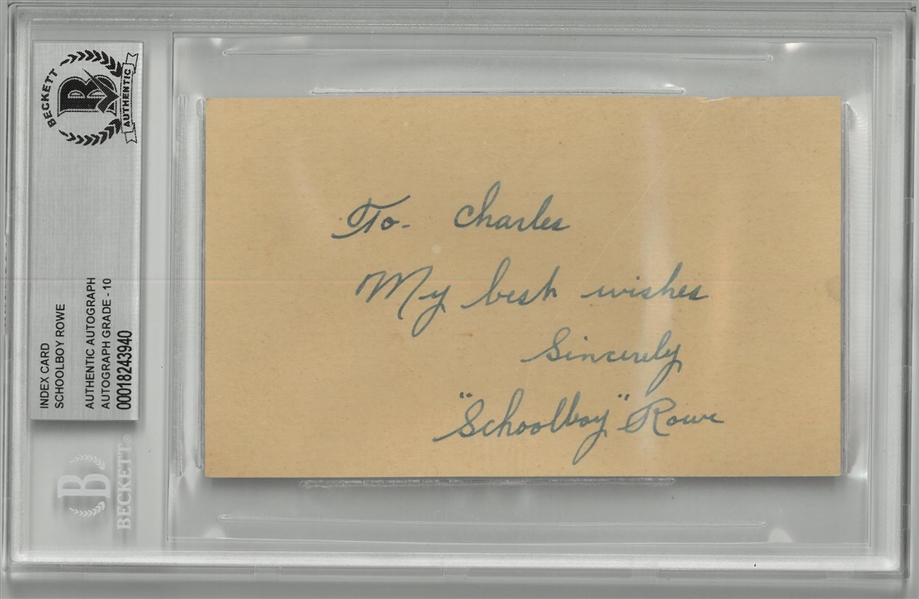 BECKETT
AUTHENTIC
INDEX CARD
SCHOOLBOY ROWE
AUTHENTIC AUTOGRAPH
AUTOGRAPH GRADE - 10
00018243940
B
BECKETT®
To - Charles
My best wishes
Sincerely
"Schoolboy" Rowe